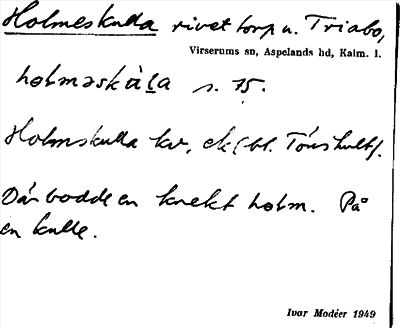 Holmeskulla rivet torp u. Triabo,
Virserums sn, Aspelands hd, Kalm. l.
hɵlməskùla s. 15.
Holmskulla kv, ek(bl. Törshultf.
Där bodde en knekt Holm. På
en kulle.
Ivar Modéer 1949